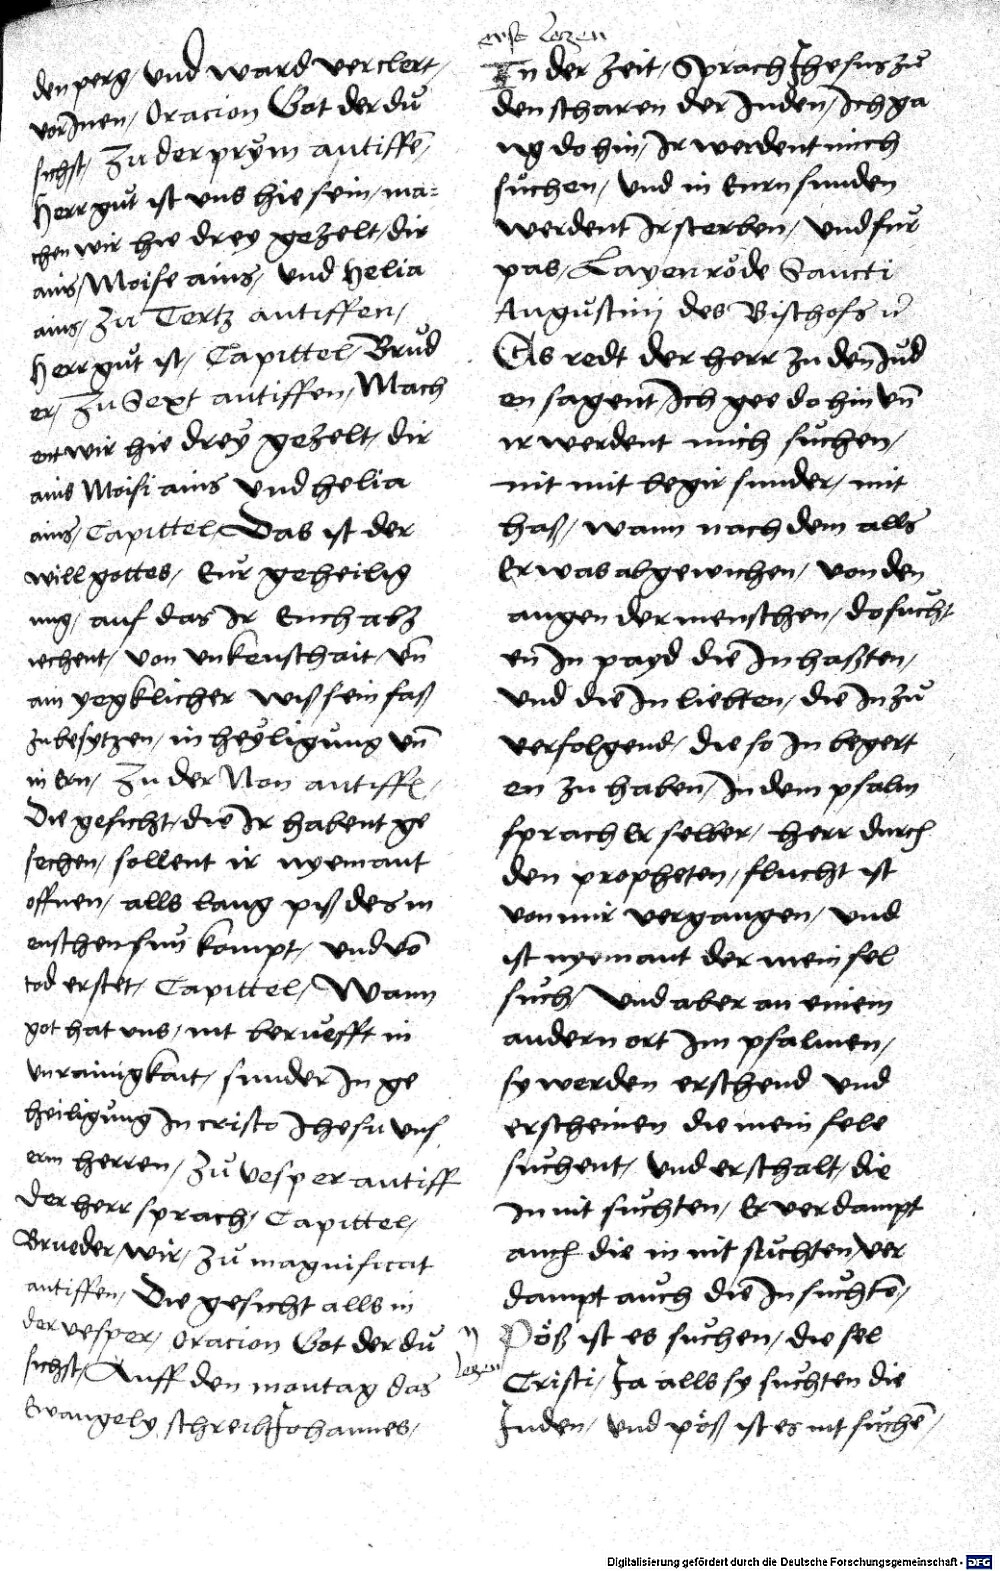 den perg / und ward verclert /
vor Inen / Oracion Got der dŭ
sichst / Zu der prÿm antiffē /
Herr gŭt ist uns hie sein / ma=
chen wir hie dreÿ gezelt / dir
ains / Moise ains / und Helia
ains / Zu Tertz antiffen /
Herr gŭt ist / Capittel / Brŭd
er / Zu Sext antiffen / Mach
en wir hie dreÿ gezelt / dir
ains Moisi ains und helia
ains / Capittel / Das ist der
will gottes / Eŭr geheilig
ung / auf das Ir Euch abz
iechent / von unkeuschait / vn̄
ain yegklicher wiß sein faß
zu besytzen / in heÿligŭng vn̄
in Ern / Zu der Non antiffē /
Die gesicht / die Ir habent ge
sechen / sollent ir nyemant
offnen / alls lang piß des m
enschen sun kompt / und vō
tod erstet / Capittel / Wann
got hat uns / nit berŭefft in
unrainigkait / sunder In ge
heiligŭng In cristo Ihesu uns
erm herren / Zŭ vesper antiff
Der herr sprach / Capittel /
Brueder / wir / Zŭ magnificat
antiffen / Die gesicht alls in
der vesper / Oracion Got der dŭ
sichst / Auff den montag das
Ewangely schreibt Johannes /
erst Lezen
In der Zeit / Sprach Ihesus zŭ
den scharen der Juden / Ich ga
ng do hin / Ir werdent mich
sŭchen / und in Eurn sunden
werdent Ir sterben / und fŭr
pas / Layenröde Sancti
Augŭstinj des Bischofs
Es redt der herr zu den Jŭd
en sagent / Ich gee do hin vn̄
ir werdent mich sŭchen /
nit mit begir sunder / mit
haß / wann nach dem alls
Er was abgewichen / von den
augen der menschen / do sŭcht
en̄ In payd die In haßten /
und die In liebten / die In zŭ
verfolgend / die so In begert
en zu haben / In dem psalm
sprach Er selber / herr durch
den propheten / flucht ist
von mir vergangen / und
ist nyemant der mein sel
such / und aber an einem
andern ort Im psalmen /
sy werden erschend und
erscheinen die mein sele
sŭchent / und er schalt / die
In nit sŭchten / Er verdampt
auch die in nit sŭchten / ver
dampt aŭch die In sŭchtē /
Pöß ist es sŭchen / die sel
Lezen
Cristi / Ja alls sy sŭchten die
Juden / und pöß ist es nit sŭchē /
Digitalisierung gefördert durch die Deutsche Forschungsgemeinschaft - DFG